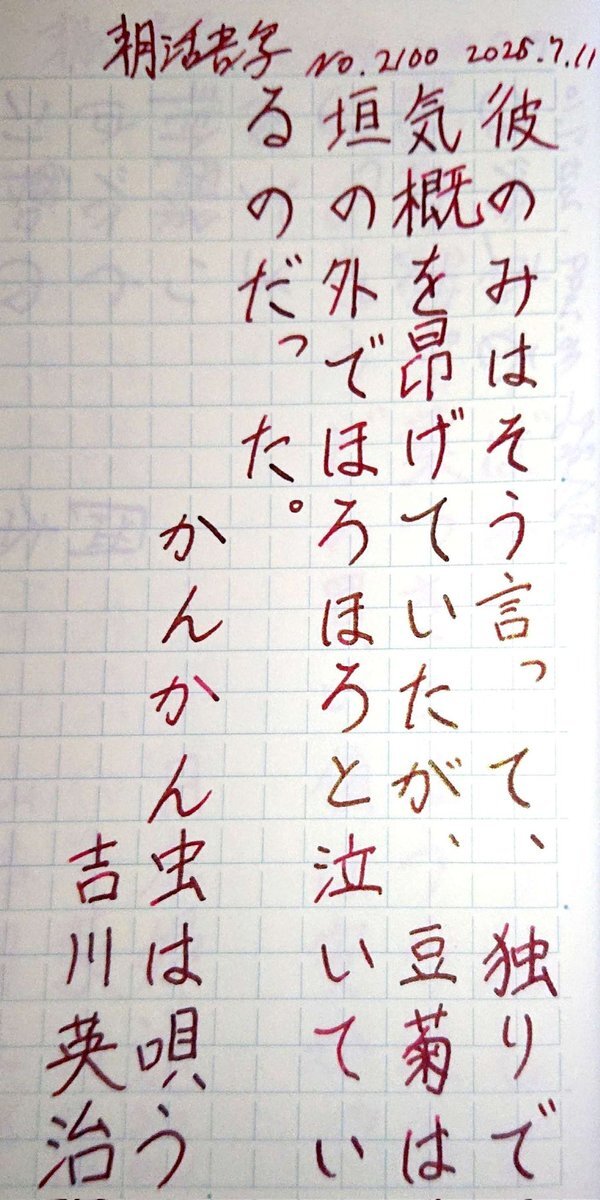 朝活書写 No.2100 2025.7.11
彼のみはそう言って、独りで
気概を昂げていたが、豆菊は
垣の外でほろほろと泣いてい
るのだった。
かんかん虫は唄う
吉川英治